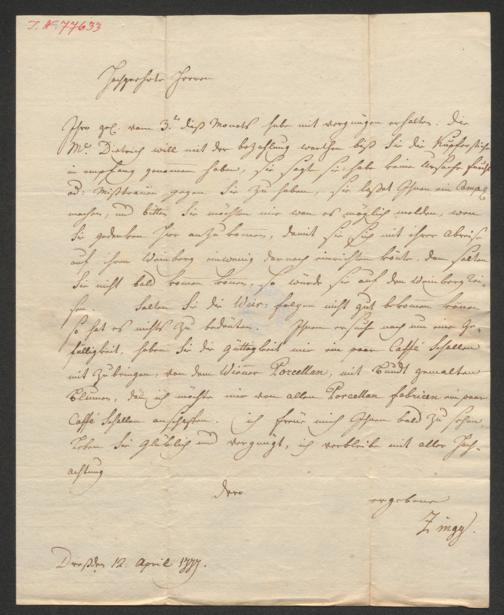 I. N. 77633
Hochgeehrte Herren
Ihro gel. vom 3.ten dieß Monats habe mit vergnügen erhalten. Die
Me. Dietrich will mit der bezahlung warthen biß Sie die Kupferstiche
in empfang genomen haben, sie sagt sie habe keine Ursache
od. Mißtrauen gegen Sie zu haben, sie laßet Ihnen ein
machen, und bitten Sie möchten mir wen es möglich melden, wen
Sie gedenken hier anzukomen, damit sie sich mit ihrer Abreise
auf ihren Weinberg darnach einrichten könte, dan solten
Sie nicht bald komen könen, so würde sie auf den Weinberg
Solten Sie die folgen nicht gut bekomen könen
so hat es nichts zu bedeuten. Ihnen ersuche noch um eine Ge-
fälligkeit, haben Sie die Güttigkeit mir ein paar Caffé Schallen
mit zu bringen, von dem Wiener Porcellan, mit Bundt gemalten
Blumen, den ich möchte mir von allen Porcellan fabricen ein paar
Caffé Schallen anschaffen. ich freue mich Ihnen bald zu sehen
leben Sie Glücklich und vergnügt, ich verbleibe mit aller Hoch-
achtung
Dero
ergebene
Zingg.
Dreßden 12. April 1777.